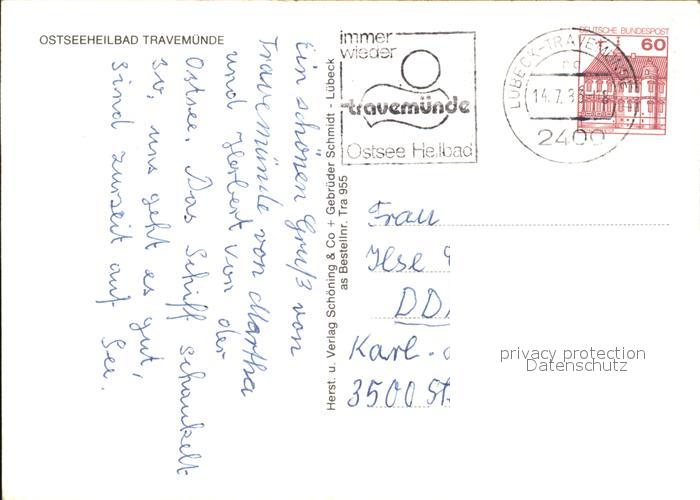 OSTSEEHEILBAD TRAVEMÜNDE
Ein schönen Gruß von
Travemünde von Martha
und Herbert von der
Ostsee. Das Schiff schaukelt
so, uns geht es gut,
sind zurzeit auf
See.
Herst. u. Verlag Schöning & Co + Gebrüder Schmidt - Lübeck
as Bestellnr. Tra 955
immer
wieder
travemünde
Ostsee Heilbad
LÜBECK-TRAVEMÜNDE
14.7.8
2400
DEUTSCHE BUNDESPOST
60
Frau
Ilse
DD
Karl-
3500 St
privacy protection
Datenschutz